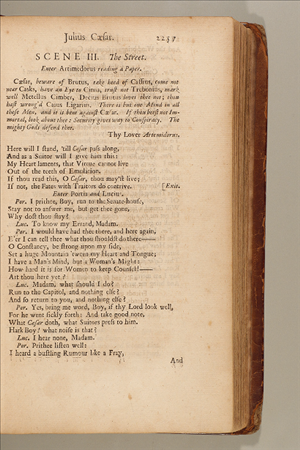 Julius Cæsar. 2257
SCENE III. The Street.
Enter Artimedorus reading a Paper.
Cæsar, beware of Brutus, take heed of Cassius, come not
near Caska, have an Eye to Cinna, trust not Trebonius, mark
well Metellus Cimber, Decius Brutus loves thee not; thou
hast wrong'd Caius Ligarius. There is but one Mind in all
these Men, and it is bent against Cæsar. If thou beest not Im-
mortal, look about thee: Security gives way to Conspiracy. The
mighty Gods defend thee.
Thy Lover Artemidorus.
Here will I stand, 'till Cæsar pass along,
And as a Suitor will I give him this:
My Heart laments, that Virtue cannot live
Out of the teeth of Emulation.
If thou read this, O Cæsar, thou may'st live;
If not, the Fates with Traitors do contrive. [Exit.
Enter Portia and Lucius.
Por. I prithee, Boy, run to the Senate-house,
Stay not to answer me, but get thee gone.
Why dost thou stay?
Luc. To know my Errand, Madam.
Por. I would have had thee there, and here again,
E'er I can tell thee what thou shouldst do there——
O Constancy, be strong upon my side,
Set a huge Mountain 'tween my Heart and Tongue;
I have a Man's Mind, but a Woman's Might:
How hard it is for Women to keep Counsel!——
Art thou here yet?
Luc. Madam, what should I do?
Run to the Capitol, and nothing else?
And so return to you, and nothing else?
Por. Yes, bring me word, Boy, if thy Lord look well,
For he went sickly forth: And take good note,
What Cæsar doth, what Suitors press to him.
Hark Boy! what noise is that?
Luc. I hear none, Madam.
Por. Prithee listen well:
I heard a bustling Rumour like a Fray,
And